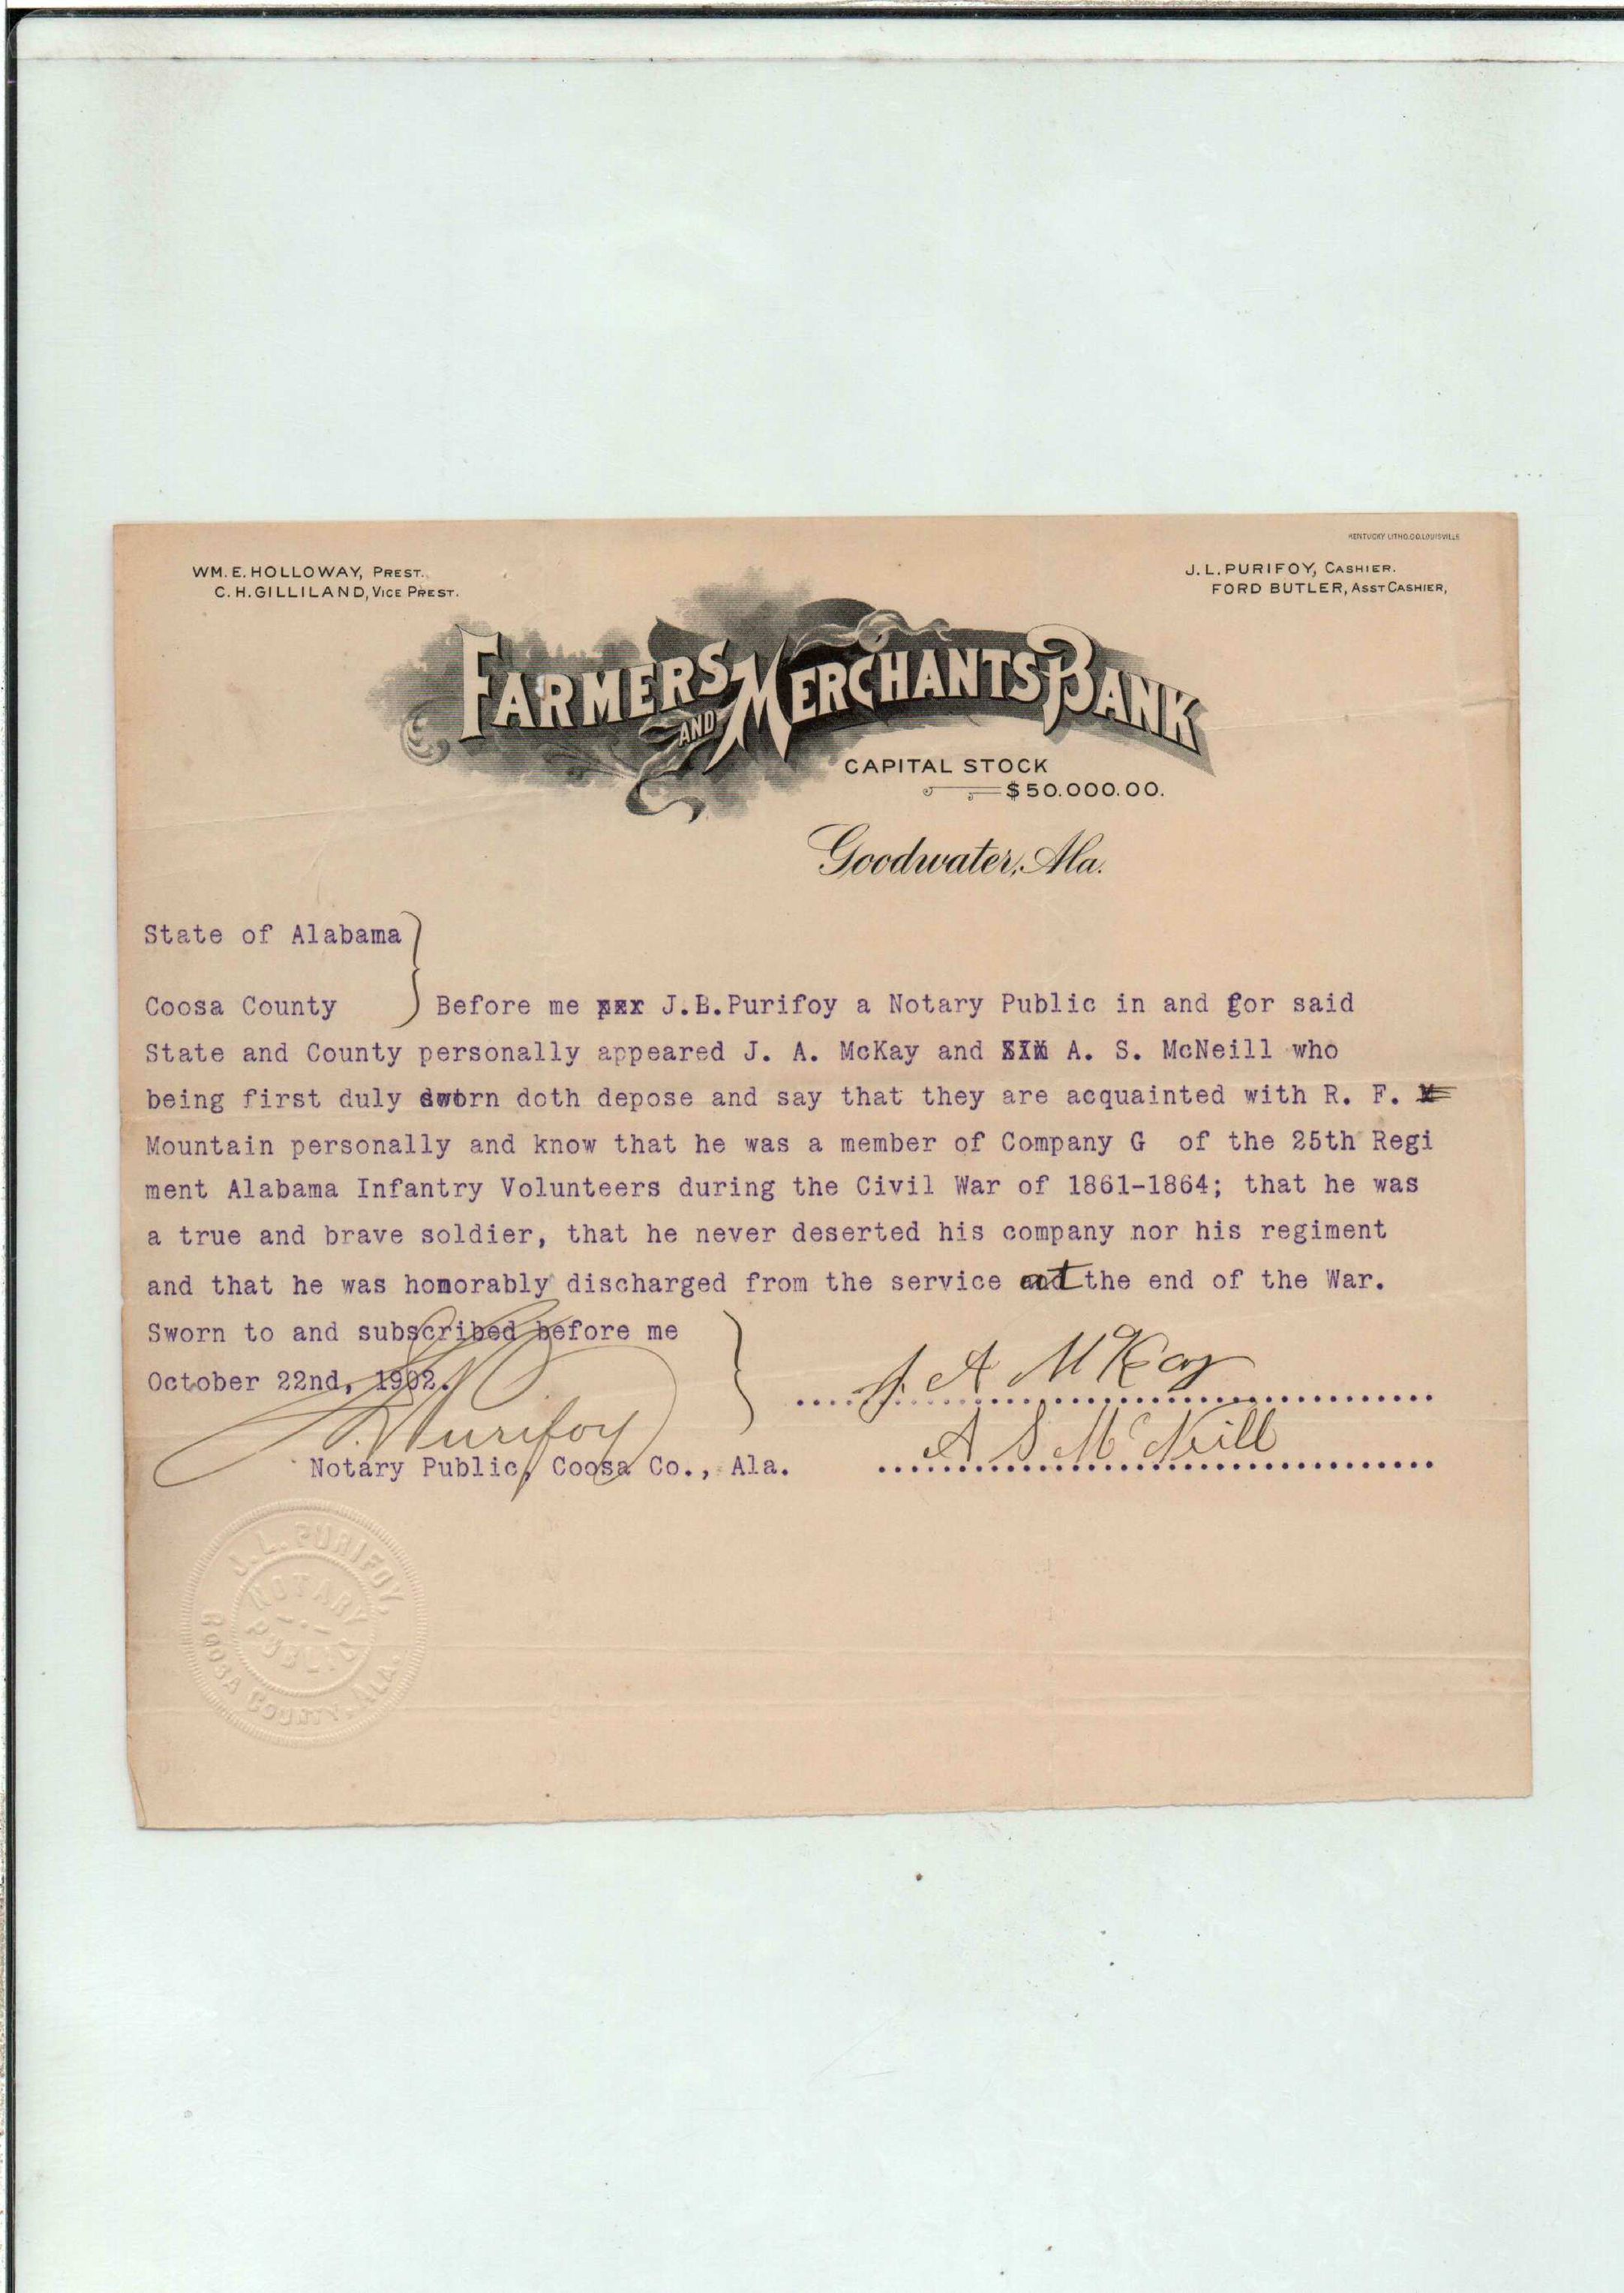 KENTUCKY LITHO.CO.LOUISVILLE
WM. E. HOLLOWAY, PREST.
C. H. GILLILAND, VICE PREST.
J. L. PURIFOY, CASHIER.
FORD BUTLER, ASST CASHIER,
FARMERS AND MERCHANTS BANK
CAPITAL STOCK
$50.000.00.
Goodwater, Ala.
State of Alabama
Coosa County Before me J.L.Purifoy a Notary Public in and for said
State and County personally appeared J. A. McKay and A. S. McNeill who
being first duly sworn doth depose and say that they are acquainted with R. F.
Mountain personally and know that he was a member of Company G of the 25th Regi
ment Alabama Infantry Volunteers during the Civil War of 1861-1864; that he was
a true and brave soldier, that he never deserted his company nor his regiment
and that he was honorably discharged from the service at the end of the War.
Sworn to and subscribed before me
October 22nd, 1902.
J. A McKay
J L Purifoy
A S McNeill
Notary Public, Coosa Co., Ala.
J. L. PURIFOY,
NOTARY
PUBLIC
COOSA COUNTY, ALA.